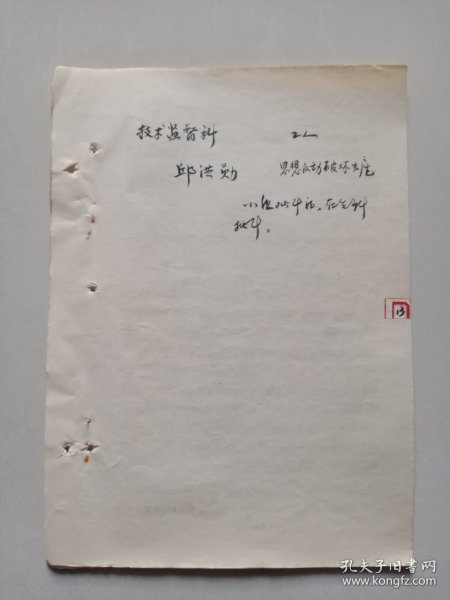 技术监督科
邱洪勋 思想反动破坏生产
小组批斗后，在全科
批斗。
13
孔夫子旧书网
www.kongfz.com